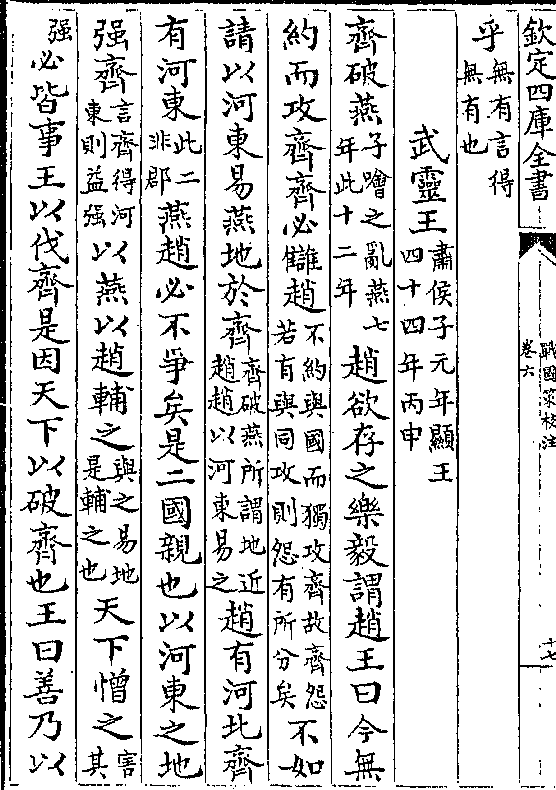 欽定四庫全書
戰國策校注
卷六
十七
乎無有言得
無有也
武靈王肅侯子元年顯王
四十四年丙申
齊破燕子噲之亂燕七
年此十二年趙欲存之樂毅謂趙王曰今無
約而攻齊齊必讎趙不約與國而獨攻齊故齊怨
若有與同攻則怨有所分矣不如
請以河東易燕地於齊齊破燕所謂地近
趙趙以河東易之趙有河北齊
有河東此二
非郡燕趙必不爭矣是二國親也以河東之地
强齊言齊得河
東則益强以燕以趙輔之與之易地
是輔之也天下憎之害
其
强必皆事王以伐齊是因天下以破齊也王曰善乃以